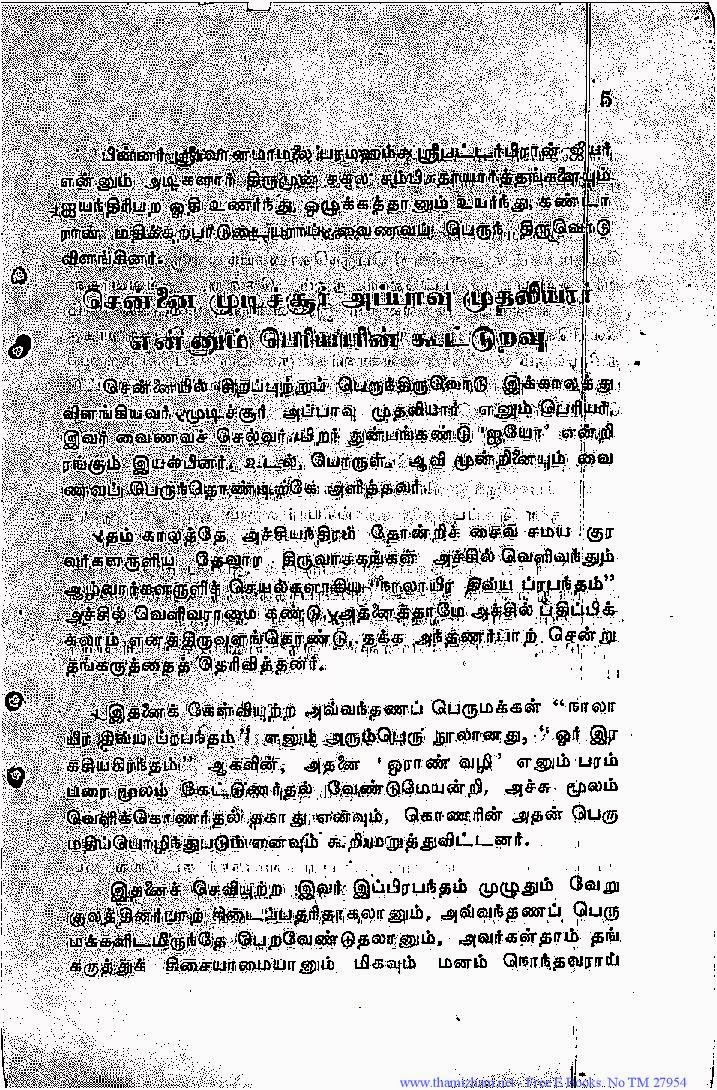 5
பின்னர் ஸ்ரீ வானமாமலை பரமஹம்ச ஸ்ரீ பட்டர்பிரான் ஜீயர்
என்னும் அடிகளார் திருமுன் சகல சம்பிரதாயார்த்தங்களையும்
ஐயந்திரிபற ஓதி உணர்ந்து, ஒழுக்கத்தானும் உயர்ந்து, கண்டா
ரான் மதிக்கற்பாடுடையராய் வைணவப் பெருந் திருவொடு
விளங்கினர்.
சென்னை முடிச்சூர் அப்பாவு முதலியார்
என்னும் பெரியாரின் கூட்டுறவு
சென்னையில் சிறப்புற்றுப் பெருந்திருவோடு இக்காலத்து
விளங்கியவர் முடிச்சூர் அப்பாவு முதலியார் எனும் பெரியர்.
இவர் வைணவச் செல்வர். பிறர் துன்பங்கண்டு 'ஐயோ' என்றி
ரங்கும் இயல்பினர். உடல், பொருள், ஆவி மூன்றினையும் வை
ணவப் பெருந்தொண்டிற்கே அளித்தவர்.
தம் காலத்தே, அச்சியந்திரம் தோன்றிச் சைவ சமய குர
வர்களருளிய தேவார திருவாசகங்கள் அச்சில் வெளிவந்தும்
ஆழ்வார்களருளிச் செயல்களாகிய “நாலாயிர திவ்ய ப்ரபந்தம்”
அச்சில் வெளிவராமை கண்டு, அதனைத்தாமே அச்சில் பதிப்பிக்
கலாம் எனத்திருவுளங்கொண்டு, தக்க அந்தணர்பாற் சென்று
தங்கருத்தைத் தெரிவித்தனர்.
இதனைக் கேள்வியுற்ற அவ்வந்தணப் பெருமக்கள் “நாலா
யிர திவ்ய ப்ரபந்தம்” எனும் அரும்பெரு நூலானது, “ஓர் இர
கசியகிரந்தம்” ஆகலின், அதனை 'ஓராண் வழி' எனும் பரம்
பரை மூலம் கேட்டுணர்தல் வேண்டுமேயன்றி, அச்சு மூலம்
வெளிக்கொணர்தல் தகாது என்வும், கொணரின் அதன் பெரு
மதிப்பொழிந்துபடும் எனவும் கூறியமறுத்துவிட்டனர்.
இதனைச் செவியுற்ற இவர் இப்பிரபந்தம் முழுதும் வேறு
குலத்தினர்பாற் கிடைப்பதரிதாகலானும், அவ்வந்தணப் பெரு
மக்களிடமிருந்தே பெறவேண்டுதலானும், அவர்கள்தாம் தங்
கருத்துக் கிசையாமையானும் மிகவும் மனம் நொந்தவராய்
www.thamizham.net - Free E Books. No TM 27954